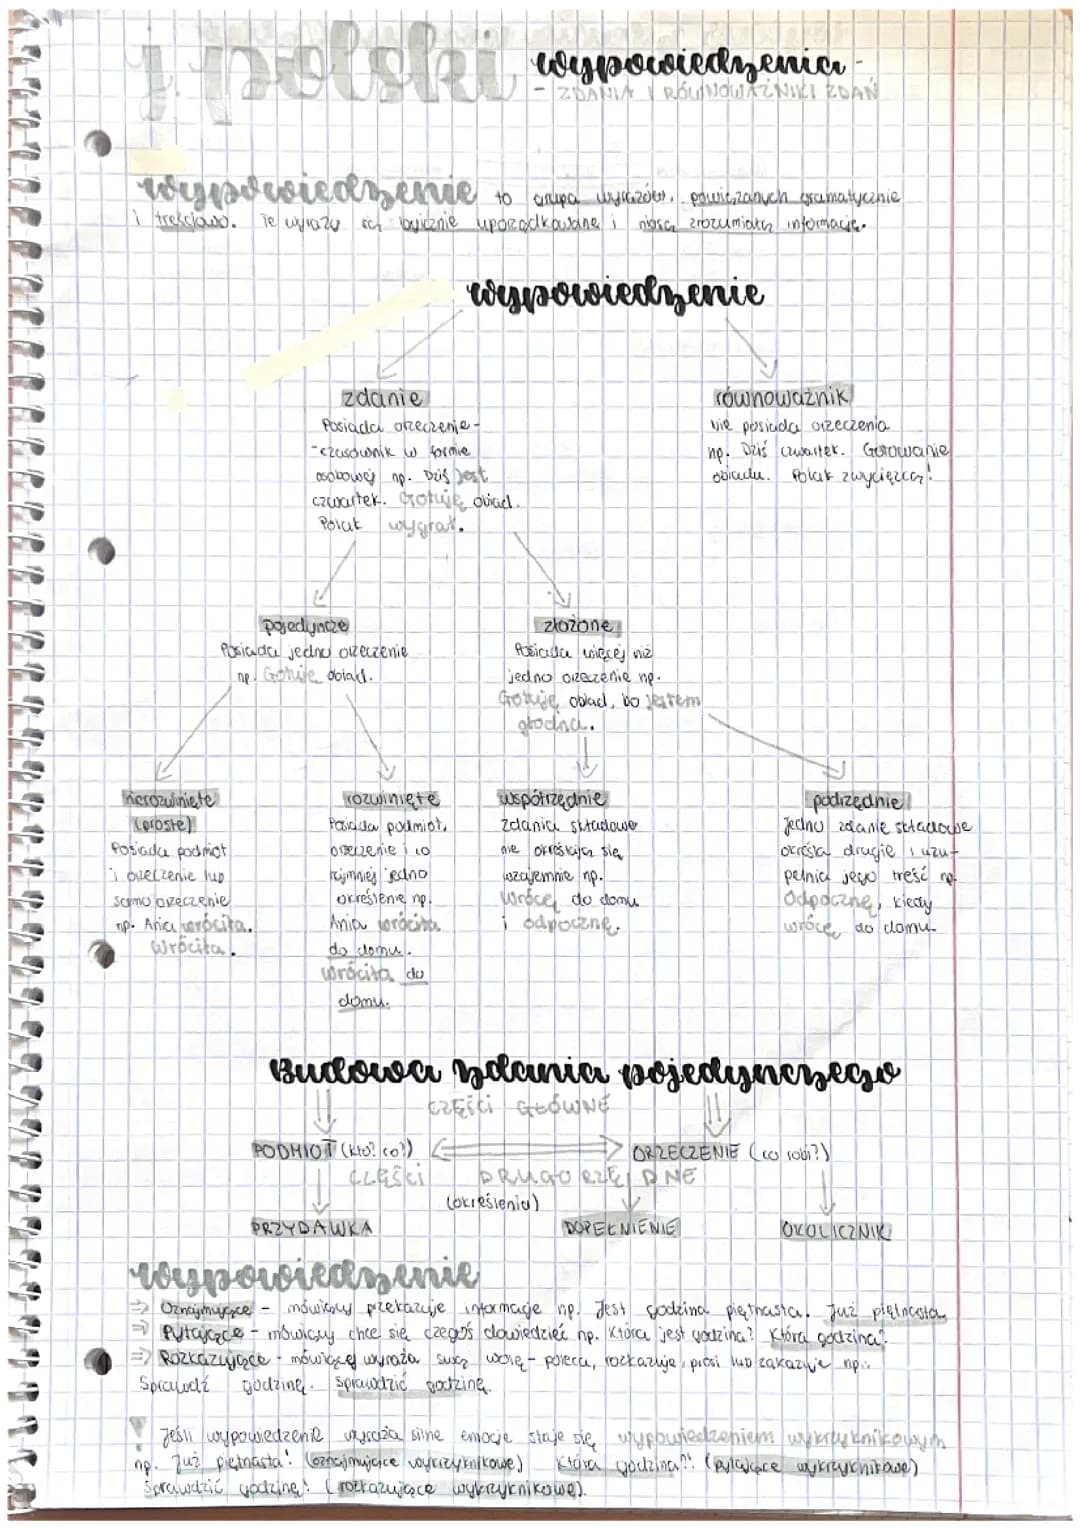 j. polski wypowiedzenia -
- ZDANIA I RÓWNOWAŻNIKI ZDAŃ
wypowiedzenie to grupa wyrazów, powiązanych gramatycznie
i treściowo. Te wyrazy są logicznie uporządkowane i niosą zrozumiałą informację.
wypowiedzenie
zdanie
Posiada orzeczenie -
- czasownik w formie
osobowej np. Dziś jest
czwartek. Gotuję obiad.
Polak wygrał.
równoważnik
Nie posiada orzeczenia
np. Dziś czwartek. Gotowanie
obiadu. Polak zwycięzcą!
pojedyncze
Posiada jedno orzeczenie
np. Gotuję obiad.
złożone
Posiada więcej niż
jedno orzeczenie np.
Gotuję obiad, bo jestem
głodna.
nierozwinięte
(proste)
Posiada podmiot
i orzeczenie lup
samo orzeczenie
np. Ania wróciła.
Wróciła.
rozwinięte
Posiada podmiot,
orzeczenie i co
najmniej jedno
określenie np.
Ania wróciła
do domu.
Wróciła do
domu.
współrzędnie
Zdania składowe
nie określają się
wzajemnie np.
Wrócę do domu
i odpocznę.
podrzędnie
Jedno zdanie składowe
określa drugie i uzu-
pełnia jego treść np.
Odpocznę, kiedy
wrócę do domu.
Budowa zdania pojedynczego
CZĘŚCI GŁÓWNE
PODMIOT (kto? co?) ORZECZENIE (co robi?)
CZĘŚCI DRUGORZĘDNE
(określenia)
PRZYDAWKA DOPEŁNIENIE OKOLICZNIK
wypowiedzenie
⇒ Oznajmujące - mówiący przekazuje informacje np. Jest godzina piętnasta. Już piętnasta.
⇒ Pytające - mówiący chce się czegoś dowiedzieć np. Która jest godzina? Która godzina?
⇒ Rozkazujące - mówiący wyraża swą wolę - poleca, rozkazuje, prosi lub zakazuje np.:
Sprawdź godzinę. Sprawdzić godzinę.
! Jeśli wypowiedzenie wyraża silne emocje staje się wypowiedzeniem wykrzyknikowym
np. Już piętnasta! (oznajmujące wykrzyknikowe) Która godzina?! (pytające wykrzyknikowe)
Sprawdzić godzinę! (rozkazujące wykrzyknikowe).